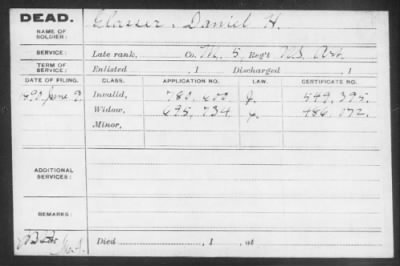 DEAD. NAME OF SOLDIER: Glasser, Daniel H.
SERVICE: Late rank, Co. M, 5, Reg't U.S. Art.
TERM OF SERVICE: Enlisted , 1 Discharged , 1
DATE OF FILING. CLASS. APPLICATION NO. LAW. CERTIFICATE NO.
Invalid, 549,395.
Widow, 695,734
Minor,
ADDITIONAL SERVICES:
REMARKS:
Died , 1 , at